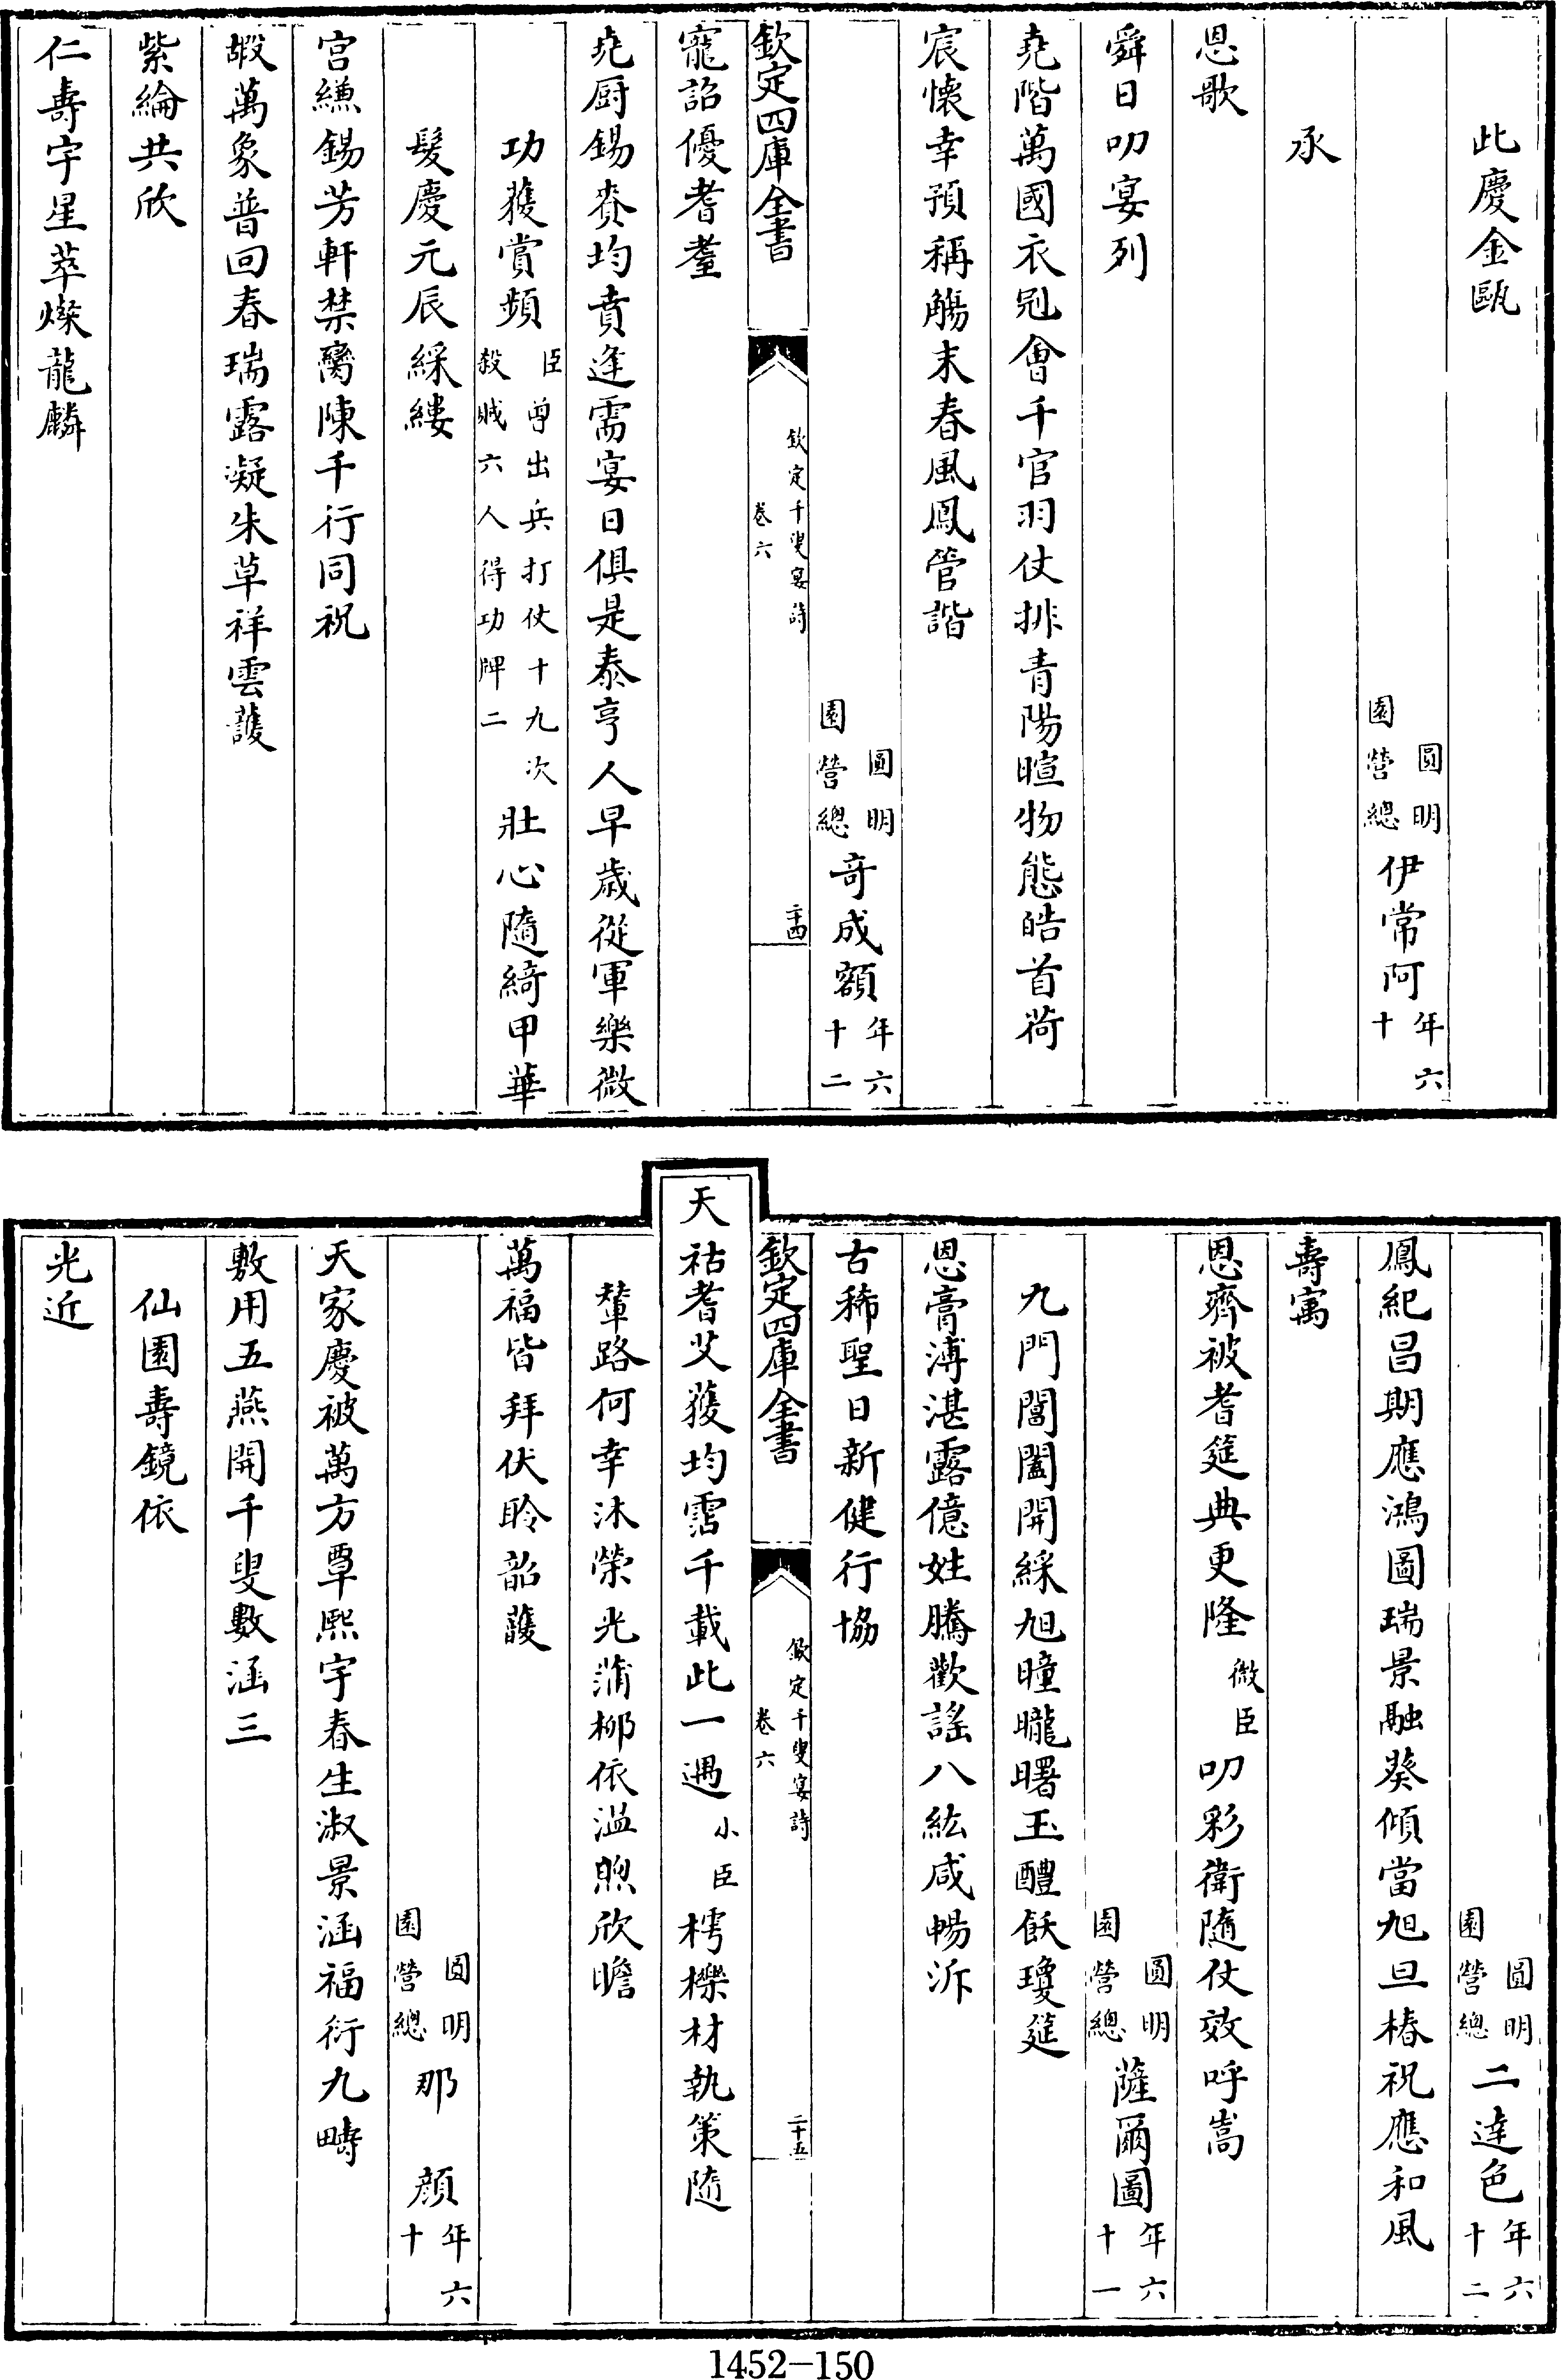 此慶金甌
圓明園營總伊常阿年六十
承
恩歌
舜日叨宴列
堯階萬國衣冠會千官羽仗排青陽暄物態皓首荷
宸懷幸預稱觴末春風鳳管諧
圓明園營總奇成額年六十二
欽定四庫全書
欽定千叟宴詩
卷六
二十四
寵詔優耆耋
堯厨錫賚均賁逢需宴日俱是泰亨人早歳從軍樂微
功獲賞頻臣曽出兵打仗十九次殺賊六人得功牌二壯心隨綺甲華
髮慶元辰綵縷
宫縑錫芳軒禁臠陳千行同祝
嘏萬象普回春瑞露凝朱草祥雲護
紫綸共欣
仁壽宇星萃燦龍麟
圓明園營總二達色年六十二
鳳紀昌期應鴻圖瑞景融葵傾當旭旦椿祝應和風
壽寓
恩齊被耆筵典更隆微臣叨彩衛隨仗效呼嵩
圓明園營總薩爾圖年六十一
九門閶闔開綵旭曈曨曙玉醴飫瓊筵
恩膏溥湛露億姓騰歡謡八紘咸暢泝
古稀聖日新健行協
欽定四庫全書
欽定千叟宴詩
卷六
二十五
天祜耆艾獲均霑千載此一遇小臣樗櫟材執策隨
輦路何幸沐榮光蒲柳依溫煦欣瞻
萬福皆拜伏聆韶頀
圓明園營總那顔年六十
天家慶被萬方覃熙宇春生淑景涵福衍九疇
敷用五燕開千叟數涵三
仙園壽鏡依
光近
1452-150